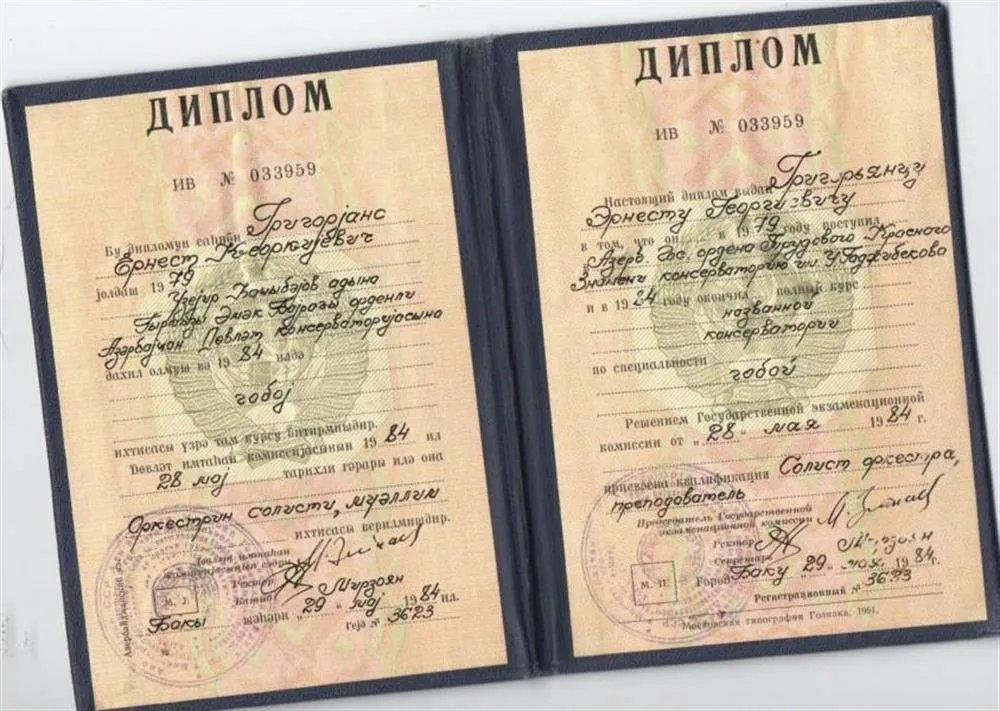 ДИПЛОМ
ИВ № 033959
Бу дипломун саһиби Григорјанс
Ернест Ҝеоркијевич
јолдаш 1979
Үзејир Һаҹыбәјов адына
Гырмызы Әмәк Бајрағы орденли
Азәрбајҹан Дөвләт консерваторијасына
дахил олмуш вә 1984 илдә
гобој
ихтисасы үзрә там курсу битирмишдир.
Дөвләт имтаһан комиссијасынын 1984 ил
28 мај тарихли гәрары илә она
Оркестрин солисти, мүәллим
ихтисасы верилмишдир.
Дөвләт имтаһан
комиссијасынын сәдри
Ректор
Катиб Мирзоян
М. Ј.
Бакы шәһәри „29“ мај 1984 ил.
Гејд № 3623
ДИПЛОМ
ИВ № 033959
Настоящий диплом выдан Григорьянцу
Эрнесту Георгиевичу
в том, что он в 1979 году поступил
Азерб. Гос. ордена Трудового Красного
Знамени консерваторию им. У. Гаджибекова
и в 1984 году окончил полный курс
названной
консерватории
по специальности
гобой
Решением Государственной экзаменационной
комиссии от „28“ мая 1984 г.
присвоена квалификация Солист оркестра,
преподователь
Председатель Государственной
экзаменационной комиссии
Ректор
Секретарь
М. П.
Город Баку 29 мая 1984г.
Регистрационный № 3623
Московская типография Гознака. 1961.